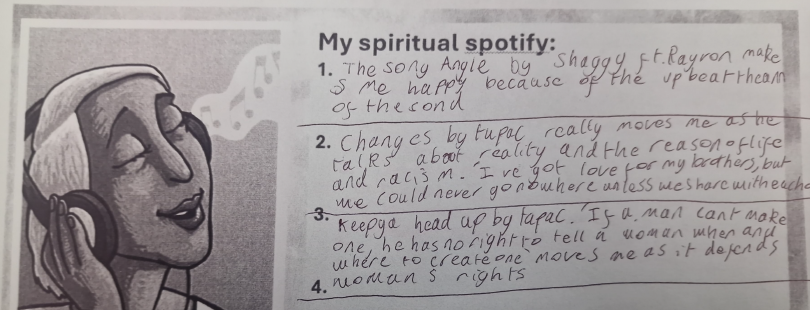 My spiritual spotify:
1. The song Angle by Shaggy ft. Rayron make
s me happy because of the upbeat rheam
of the sond
2. Changes by tupac really moves me as he
talks about reality and the reason of life
and racism. I've got love for my brothers, but
we could never go nowhere unless we share with each o
3. Keepya head up by tapac. 'If a man cant make
one, he has no right to tell a woman when and
where to create one' moves me as it defends
4. woman s rights